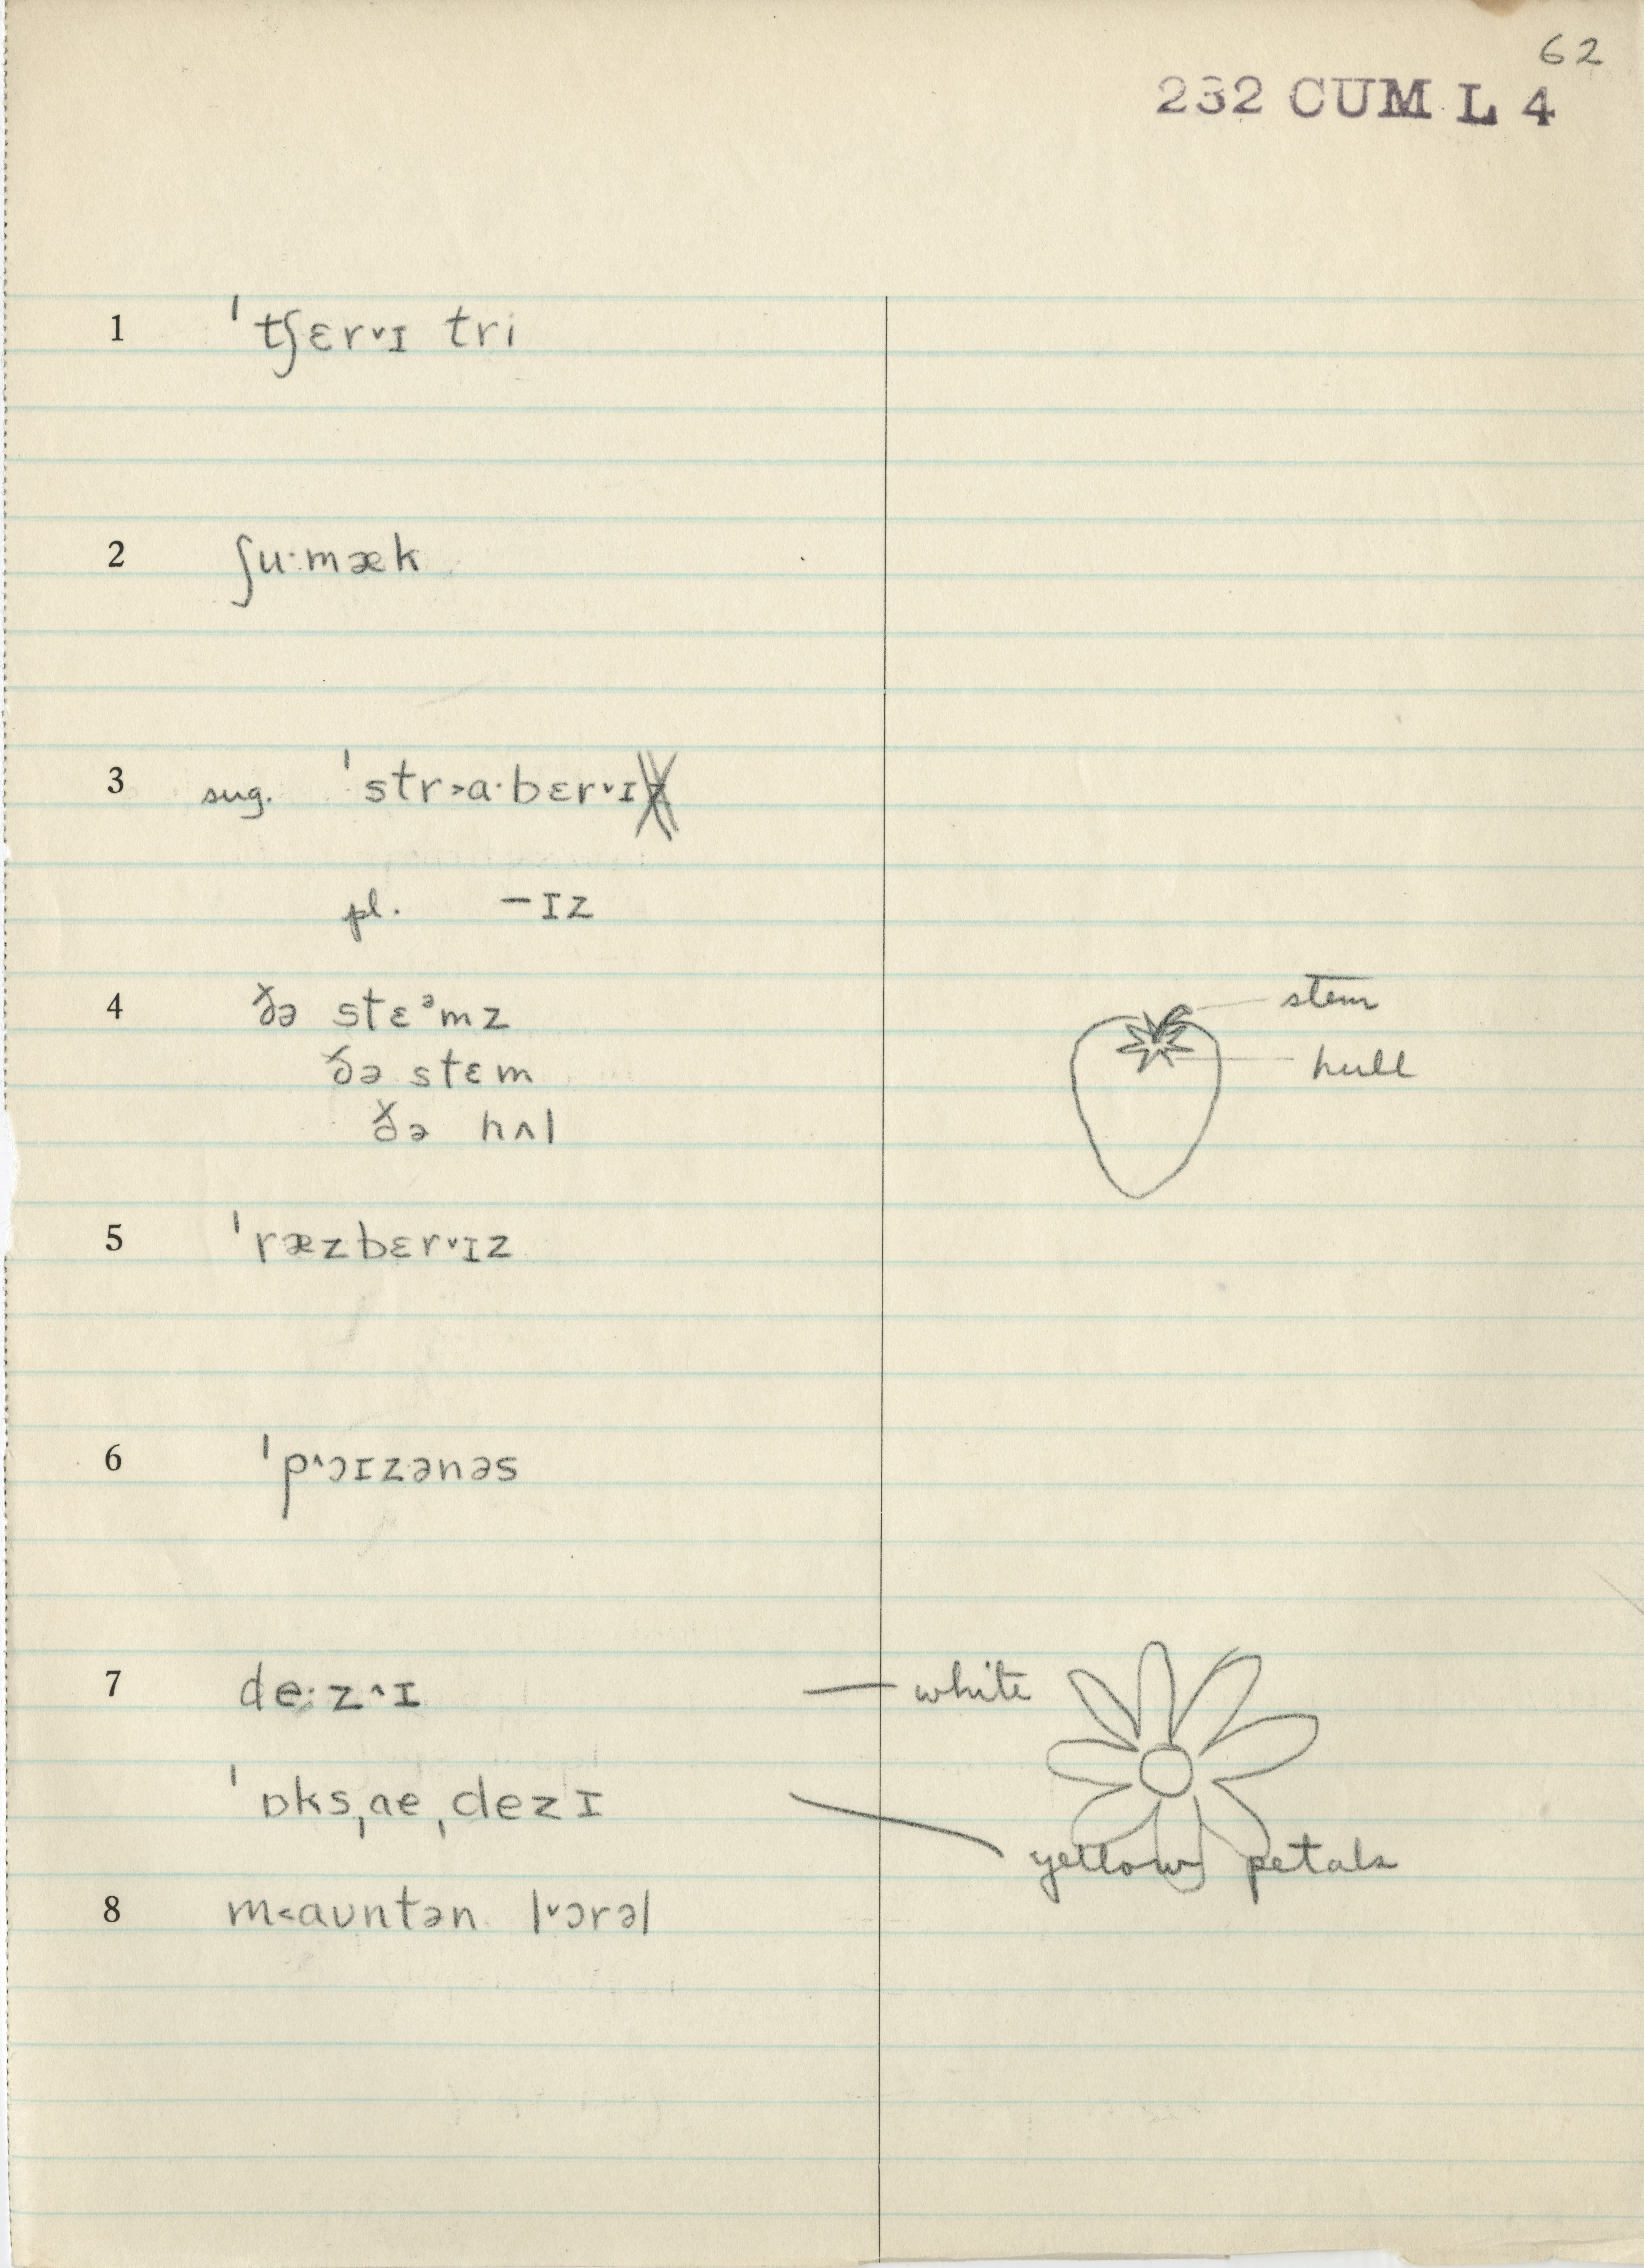 62
232 CUM L 4
1 ˈtʃɛr˅ɪ tri
2 ʃu·mæk
3 sug. ˈstr˃a·bɛr˅ɪ
pl. –ɪz
4 ðə stɛᵊmz
stem
ðə stɛm
hull
ðə hʌl
5 ˈræzbɛr˅ɪz
6 ˈp˄ɔɪzənəs
7 de·z˄ɪ — white
ˈɒksˌaeˌdezɪ
yellow petals
8 m˂aʊntən l˅ɔrəl